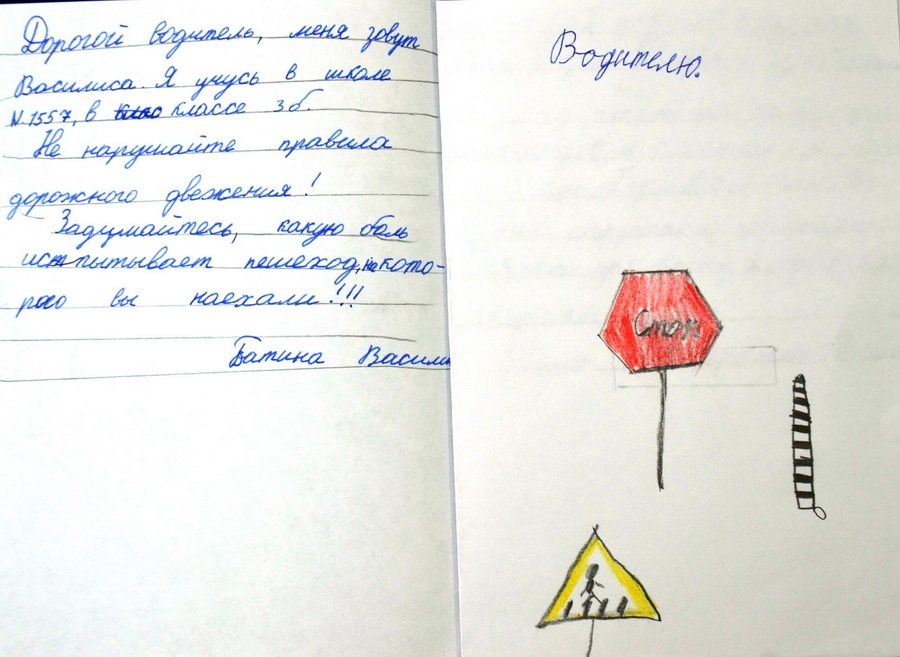 Дорогой водитель, меня зовут
Василиса. Я учусь в школе
N.1557, в классе 3б.
Не нарушайте правила
дорожного двежения!
Задумайтесь, какую боль
испытывает пешеход, на кото-
рого вы наехали!!!
Батина Васили
Водителю.
Стоп